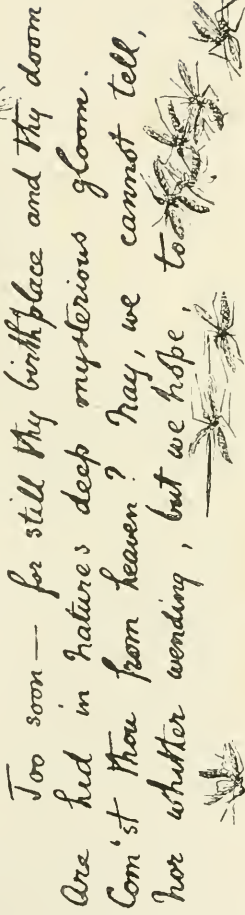 Too soon — for still thy birthplace and thy doom
Are hid in natures deep mysterious gloom.
Com'st thou from heaven? Nay, we cannot tell,
Nor whither wending, but we hope, to